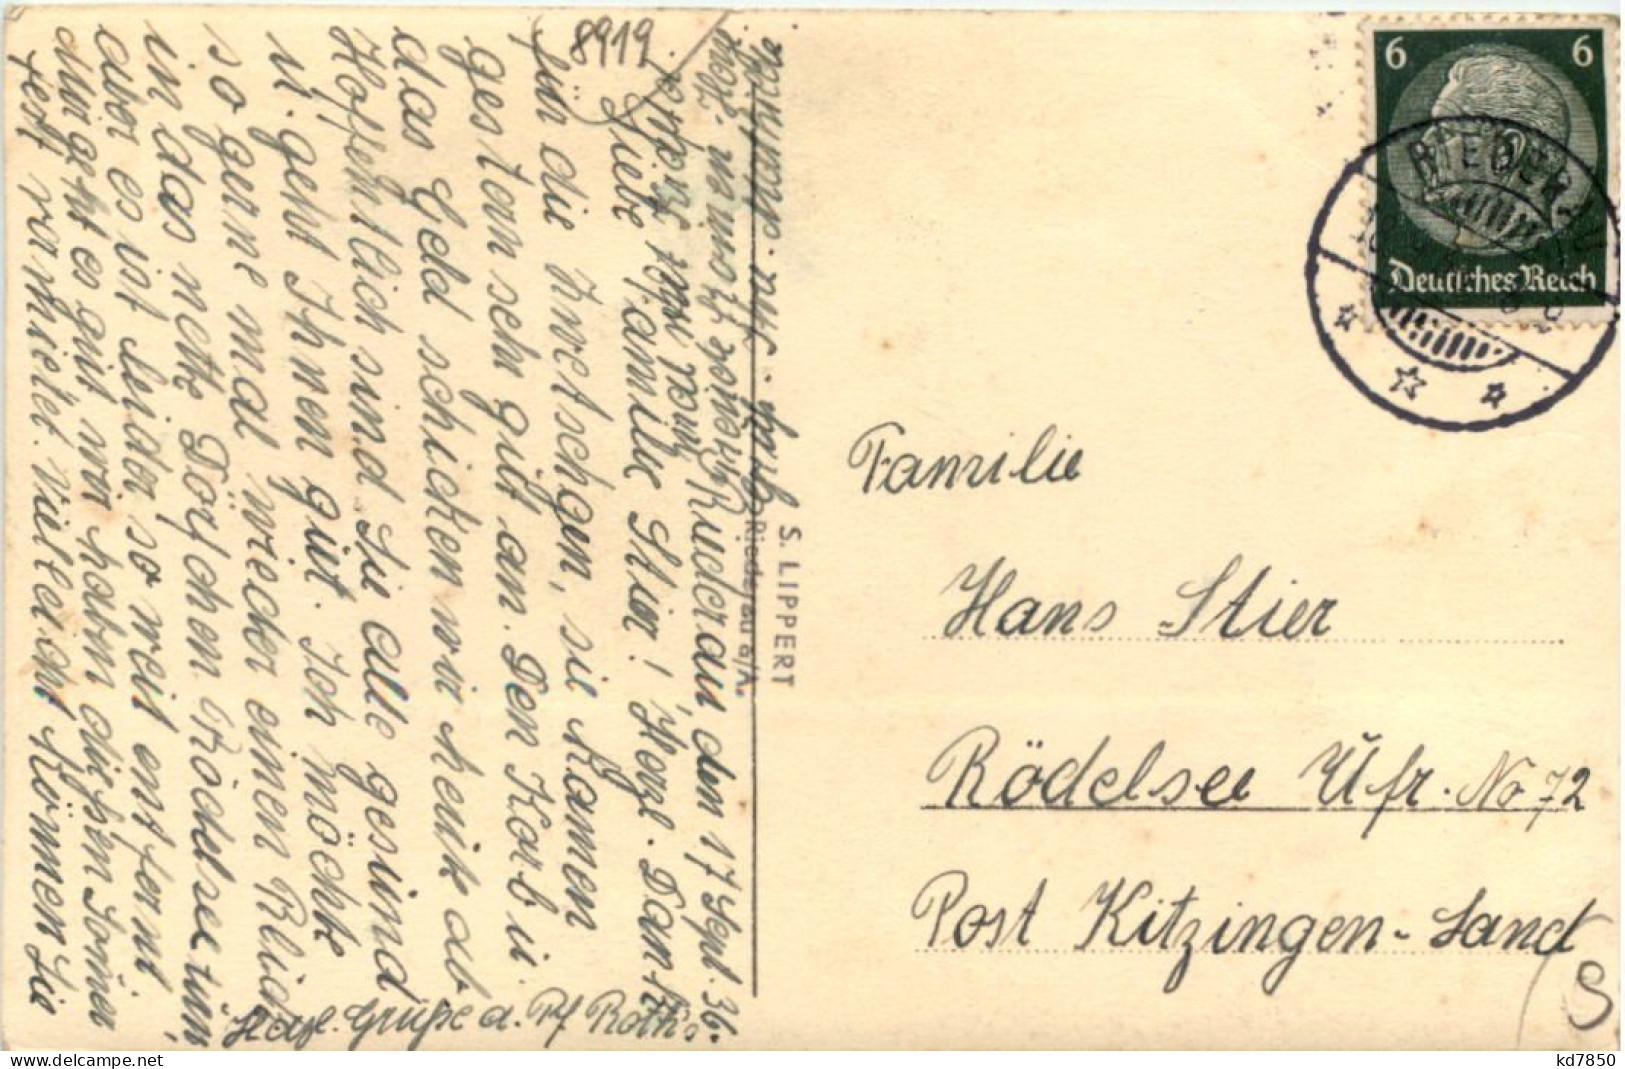 8919
Rüderau den 17 Sept. 36.
Liebe Familie Stier! Herzl. Dank
für die Zwetschgen, sie kamen
gestern sehr gut an. Den Korb u.
das Geld schicken wir heute ab
Hoffentlich sind Sie alle gesund
u. geht Ihnen gut. Ich möchte
so gerne mal wieder einen Blick
in das nette Dörfchen Rödelsee tun,
aber es ist leider so weit entfernt
uns geht es gut wir haben diesen Sommer
fest vermietet. vielleicht können Sie
Herzl. Grüße a. Pf Roths
S. LIPPERT
Riederau a/A.
6 6
Deutsches Reich
RIEDERAU
Familie
Hans Stier
Rödelsee Ufr. No 72
Post Kitzingen-Land
S
kd7850